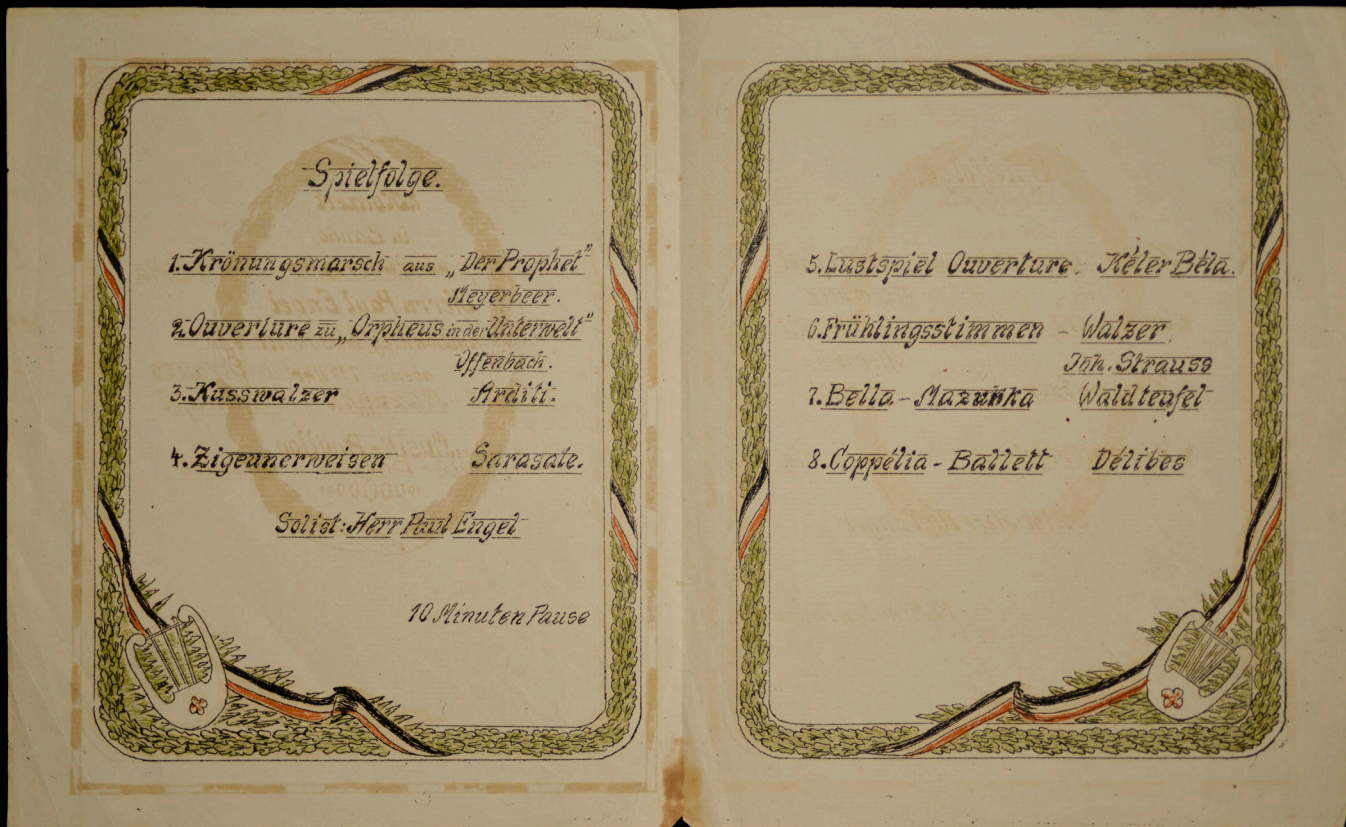 Spielfolge.
1. Krönungsmarsch aus „Der Prophet"
Meyerbeer.
2. Ouverture zu „Orpheus in der Unterwelt"
Offenbach.
3. Kusswalzer Arditi.
4. Zigeunerweisen Sarasate.
Solist: Herr Paul Engel
10 Minuten Pause
5. Lustspiel Ouverture. Kéler Béla.
6. Frühlingsstimmen - Walzer.
Joh. Strauss
7. Bella - Mazurka Waldteufel
8. Coppélia - Ballett Délibes